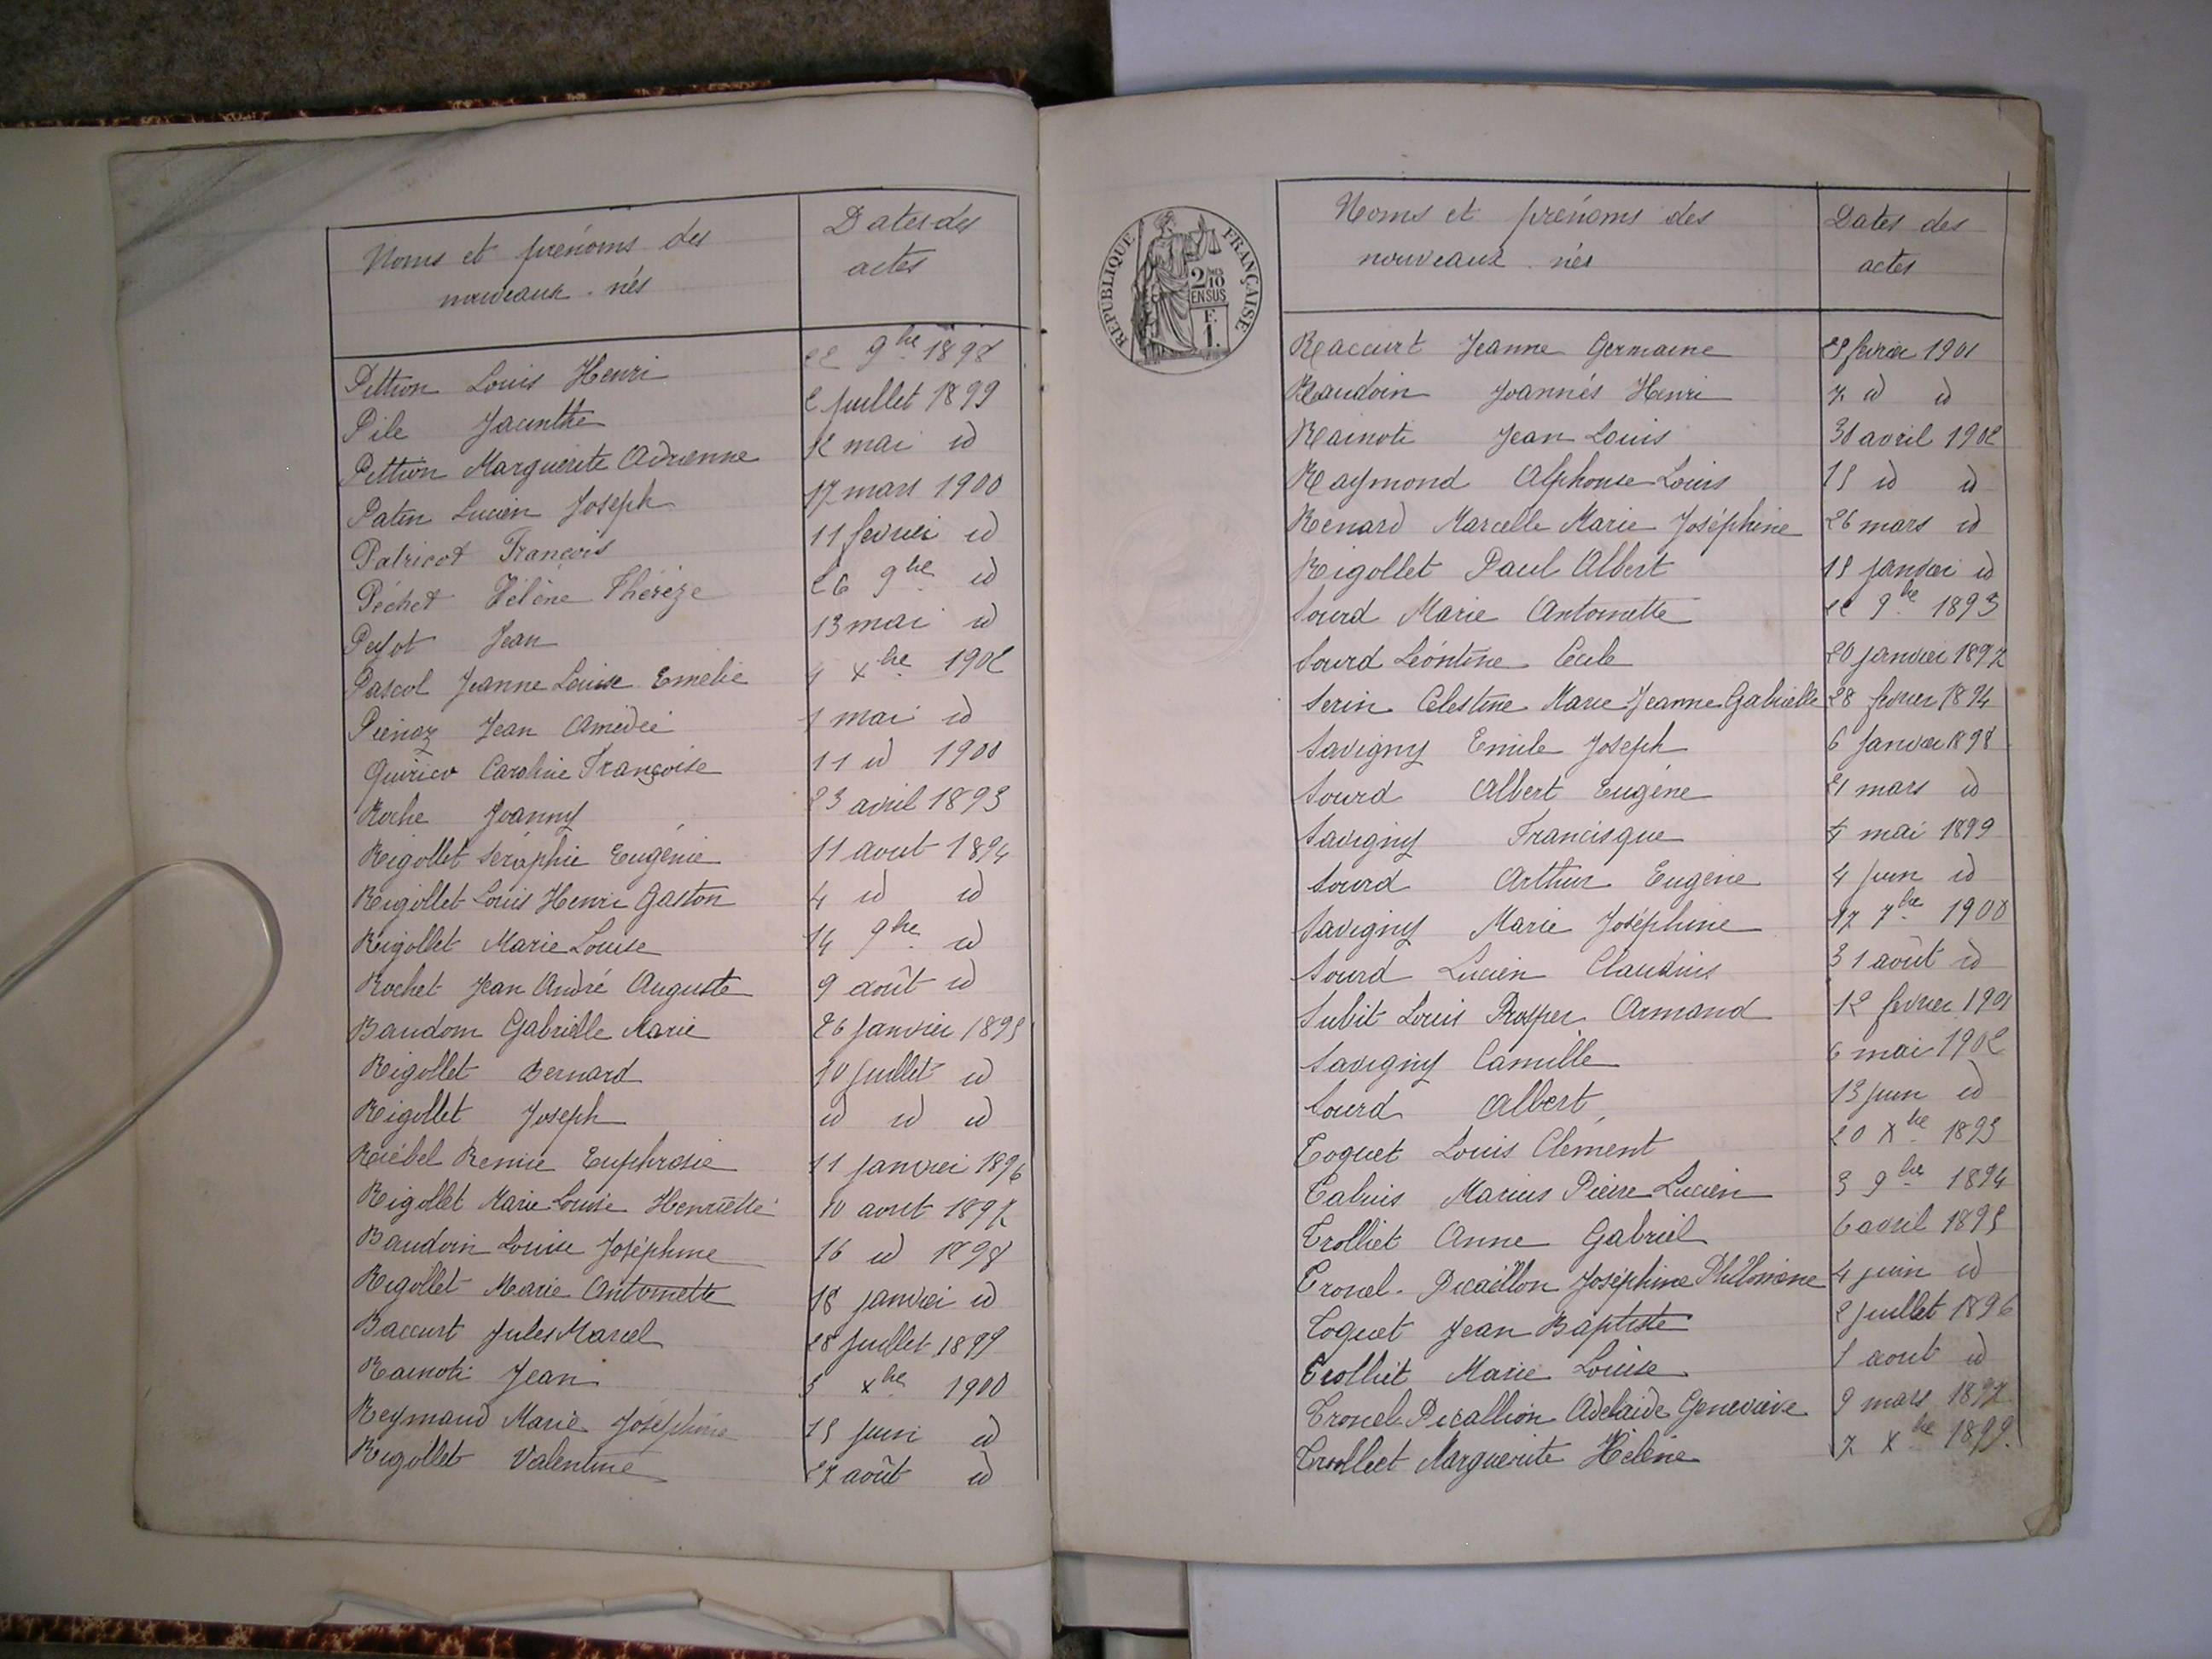 Noms et prénoms des
nouveaux-nés
Dates des
actes
Pettion Louis Henri 22 9bre 1898
Pile Jacinthe 2 juillet 1899
Pettion Marguerite Adrienne 12 mai id
Patin Lucien Joseph 17 mars 1900
Patricot François 11 fevrier id
Péchet Hélène Thérèze 26 9bre id
Peyot Jean 13 mai id
Pascol Jeanne Louise Emelie 4 xbre 1902
Jean Amédée 1 mai id
Quirico Caroline Françoise 11 id 1900
Roche Joanny 23 avril 1893
Rigollet Séraphie Eugénie 11 aout 1894
Rigollet Louis Henri Gaston 4 id id
Rigollet Marie Louise 14 9bre id
Rochet Jean André Auguste 9 août id
Gabrielle Marie 26 janvier 1895
Rigollet Bernard 10 juillet id
Rigollet Joseph id id id
Euphrosie 11 janvier 1896
Rigollet Marie Louise Henriette 10 aout 1897
Baudoin Louise Joséphine 16 id 1898
Rigollet Marie Antoinette 18 janvier id
Raccurt Jules Marcel 28 juillet 1899
Rainoti Jean 5 xbre 1900
Reymaud Marie Joséphine 15 juin id
Rigollet Valentine 27 août id
REPUBLIQUE FRANÇAISE
2/10
EN SUS
F.
1.
Noms et prénoms des
nouveaux-nés
Dates des
actes
Raccurt Jeanne Germaine fevrier 1901
Raudoin Joannés Henri 7 id id
Rainoti Jean Louis 30 avril 1902
Raymond Alphonse Louis 15 id id
Renard Marcelle Marie Joséphine 26 mars id
Rigollet Paul Albert 15 janvier id
Sourd Marie Antoinette 9bre 1893
Sourd Léontine Cécile 20 janvier 1897
Serin Célestine Marie Jeanne Gabrielle 28 fevrier 1894
Savigny Emile Joseph 6 janvier 1898
Sourd Albert Eugène 21 mars id
Savigny Francisque mai 1899
Sourd Arthur Eugène 4 juin id
Savigny Marie Joséphine 17 7bre 1900
Sourd Lucien Claudius 31 août id
Subit Louis Prosper Armand 12 fevrier 1901
Savigny Camille 6 mai 1902
Sourd Albert 13 juin id
Toquet Louis Clément 20 Xbre 1893
Tabuis Marius Pierre Lucien 3 9bre 1894
Trolliet Anne Gabriel 6 avril 1895
Tronel-Picaillon Joséphine Philomène 4 juin id
Toquet Jean Baptiste 2 juillet 1896
Trolliet Marie Louise 1 aout id
Tronel Picallion Adelaide Genevaive 9 mars 1897
Trolliet Marguerite Hélène 7 Xbre 1899